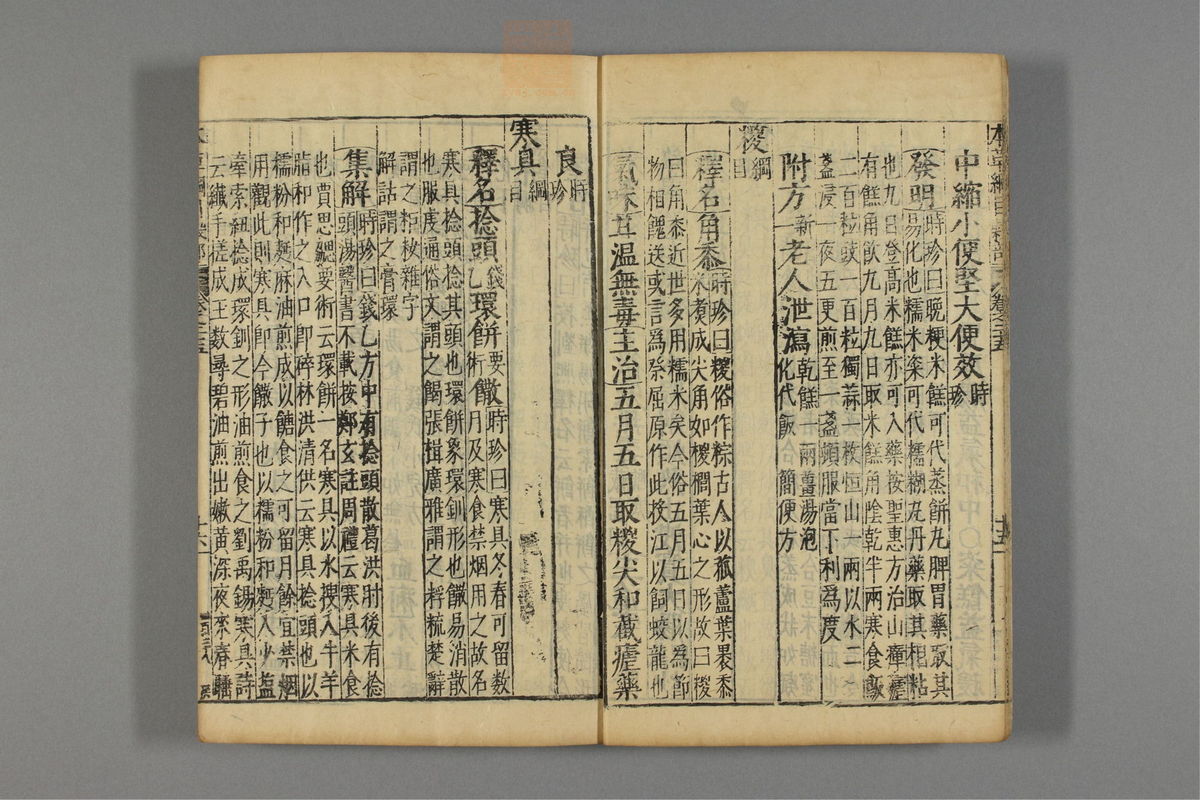 中縮小便堅大便效時珍
發明時珍曰晚粳米餻可代蒸餅丸脾胃藥取其
易化也糯米粢可代糯糊丸丹藥取其相粘
也九日登高米餻亦可入藥按聖惠方治山瘴瘧
有餻角飲九月九日取米餻角陰乾半兩寒食飯
二百粒豉一百粒獨蒜一枚恒山一兩以水二
盞浸一夜五更煎至一盞頓服當下利爲度
附方新一老人泄瀉乾餻一兩薑湯泡
化代飯簡便方
糉綱目
釋名角黍時珍曰糉俗作粽古人以菰蘆葉褁黍
米煮成尖角如糉櫚葉心之形故曰糉
曰角黍近世多用糯米矣今俗五月五日以爲節
物相餽送或言爲祭屈原作此投江以飼蛟龍也
氣味甘溫無毒主治五月五日取糉尖和截瘧藥
良時珍
寒具綱目
釋名捻頭錢乙環餅要術饊時珍曰寒具冬春可留數
月及寒食禁烟用之故名
寒具捻頭捻其頭也環餅象環釧形也饊易消散
也服虔通俗文謂之餲張揖廣雅謂之粰𥹷楚辭
謂之粔籹雜字
解詁謂之膏環
集解時珍曰錢乙方中有捻頭散葛洪肘後有捻
頭湯醫書不載按鄭玄註周禮云寒具米食
也賈思勰要術云環餅一名寒具以水搜入牛羊
脂和作之入口即碎林洪清供云寒具捻頭也以
糯粉和麪麻油煎成以餹食之可留月餘宜禁烟
用觀此則寒具即今饊子也以糯粉和麪入少鹽
牽索紐捻成環釧之形油煎食之劉禹錫寒具詩
云纖手搓成玉數尋碧油煎出嫩黃深夜來春睡